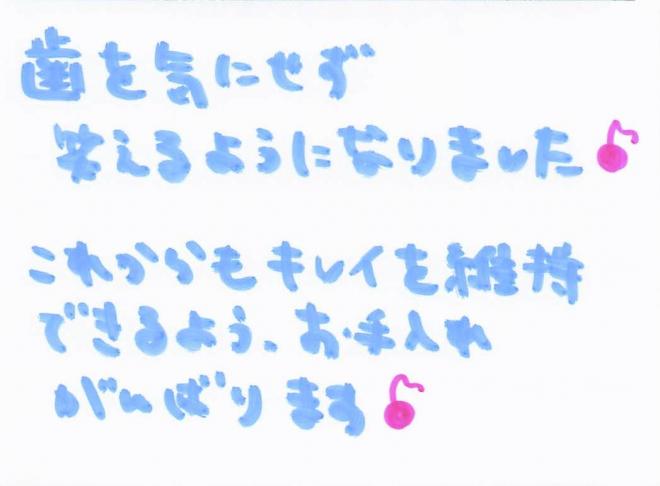 歯を気にせず
笑えるようになりました♪
これからもキレイを維持
できるよう、お手入れ
がんばります♪